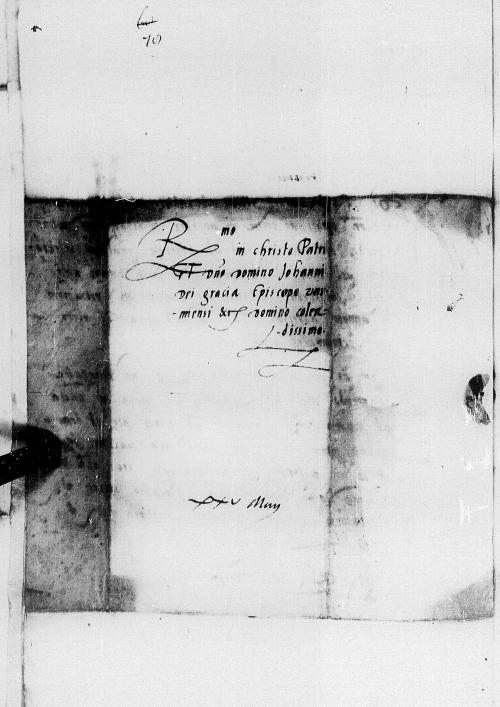 70
R mo
in christo Patri
ET Dno Domino Johanni
Dei gracia Episcopo var
-miensi &c Domino colen-
-dissimo.
xxv Maij